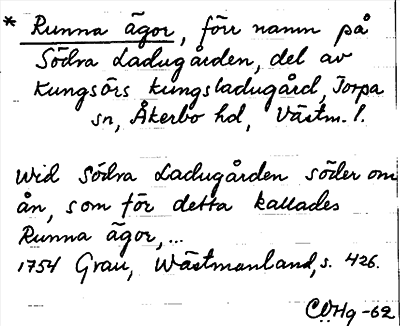 * Runna ägor, förr namn på
Södra Ladugården, del av
Kungsörs kungsladugård, Torpa
sn, Åkerbo hd, Västm. l.
Wid Södra Ladugården söder om
ån, som för detta kallades
Runna ägor,...
1754 Grau, Wästmanland, s. 426.
COHg -62